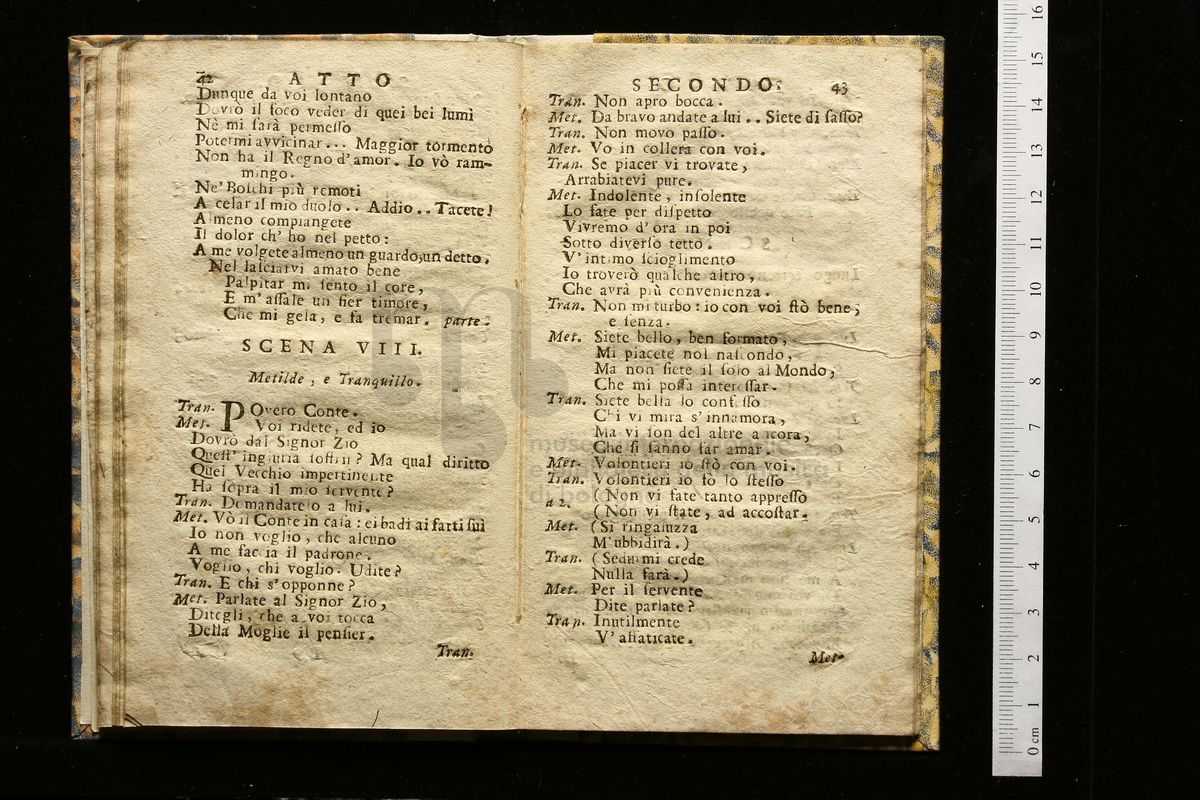 42 ATTO
Dunque da voi lontano
Dovrò il foco veder di quei bei lumi
Nè mi ſarà permeſſo
Potermi avvicinar... Maggior tormento
Non ha il Regno d'amor. Io vò ram-
mingo.
Ne' Boſchi più remoti
A celar il mio duolo.. Addio.. Tacete!
Almeno compiangete
Il dolor ch' ho nel petto:
A me volgete almeno un guardo, un detto.
Nel laſciarvi amato bene
Palpitar mi ſento il core,
E m' aſſale un fier timore,
Che mi gela, e fa tremar. parte.
SCENA VIII.
Metilde, e Tranquillo.
Tran. POvero Conte.
Met. Voi ridete, ed io
Dovrò dal Signor Zio
Queſt' ingiuria ſoffrir? Ma qual diritto
Quel Vecchio impertinente
Ha ſopra il mio ſervente?
Tran. Demandatelo a lui.
Met. Vò il Conte in caſa: ei badi ai fatti ſui
Io non voglio, che alcuno
A me faccia il padrone.
Voglio, chi voglio. Udite?
Tran. E chi s'opponne?
Met. Parlate al Signor Zio,
Ditegli, che a voi tocca
Della Moglie il penſier.
Tran.
SECONDO. 43
Tran. Non apro bocca.
Met. Da bravo andate a lui.. Siete di ſaſſo?
Tran. Non movo paſſo.
Met. Vo in collera con voi.
Tran. Se piacer vi trovate,
Arrabiatevi pure.
Met. Indolente, inſolente
Lo fate per diſpetto
Vivremo d'ora in poi
Sotto diverſo tetto.
V'intimo ſcioglimento
Io troverò qualche altro,
Che avrà più convenienza.
Tran. Non mi turbo: io con voi ſtò bene,
e ſenza.
Met. Siete bello, ben formato,
Mi piacete nol naſcondo,
Ma non ſiete il ſolo al Mondo,
Che mi poſſa intereſſar.
Tran. Siete bella lo confeſſo
Chi vi mira s'innamora,
Ma vi ſon del altre ancora,
Che ſi ſanno far amar.
Met. Volontieri io ſtò con voi.
Tran. Volontieri io fò lo ſteſſo
a 2. (Non vi fate tanto appreſſo
(Non vi ſtate, ad accoſtar.
Met. (Si ringaluzza
M'ubbidirà.)
Tran. ( mi crede
Nulla farà.)
Met. Per il ſervente
Dite parlate?
Tran. Inutilmente
V' affaticate.
Met.